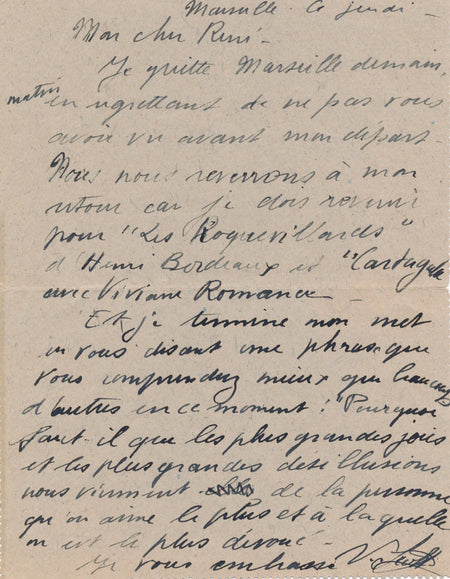 Marseille. Ce jeudi -
Mon cher René -
Je quitte Marseille demain,
matin
en regrettant de ne pas vous
avoir vu avant mon départ -
Nous nous reverrons à mon
retour car je dois revenir
pour "Les Roquevillards"
d'Henri Bordeaux et "Cartagale
avec Viviane Romance -
Et je termine mon mot
en vous disant une phrase que
vous comprendrez mieux que beaucoup
d'autres en ce moment! "Pourquoi
faut-il que les plus grandes joies
et les plus grandes désillusions
nous viennent de la personne
qu'on aime le plus et à laquelle
on est le plus dévoué -
Je vous embrasse